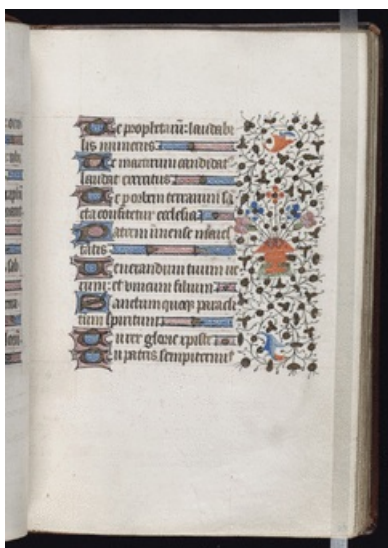 Te prophetarū: laudabi
lis numerus
Te martirum candidat'
laudat exercitus
Te per orbem terrarum sā
cta confitetur ecclesia
Patrem īmense maies
tatis
Venerandum tuum ue
rum: et unicum filium
Sanctum quoqз paracli
tum spiritum
Tu rex glorie xpiste
Tu patris sempiternus